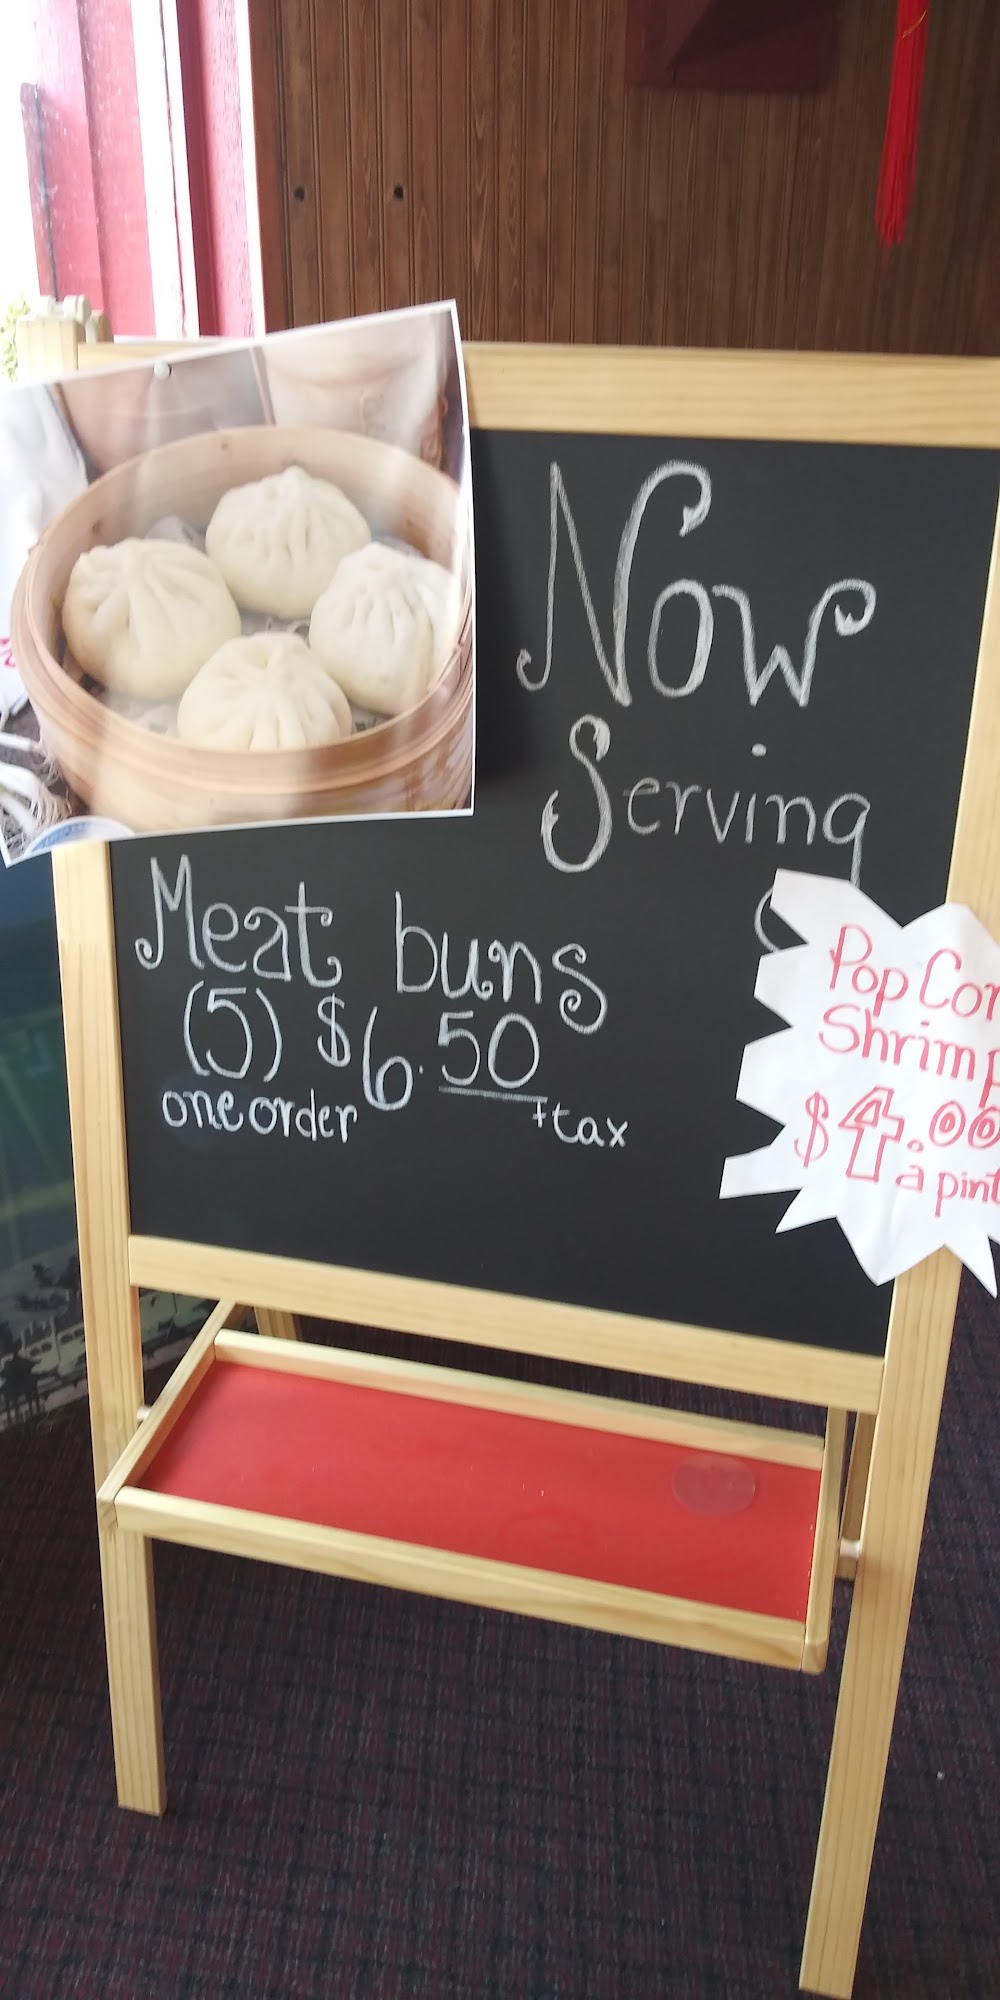 Now
Serving
Meat buns
(5) $6.50
one order +tax
Pop Cor
Shrimp
$4.00
a pint